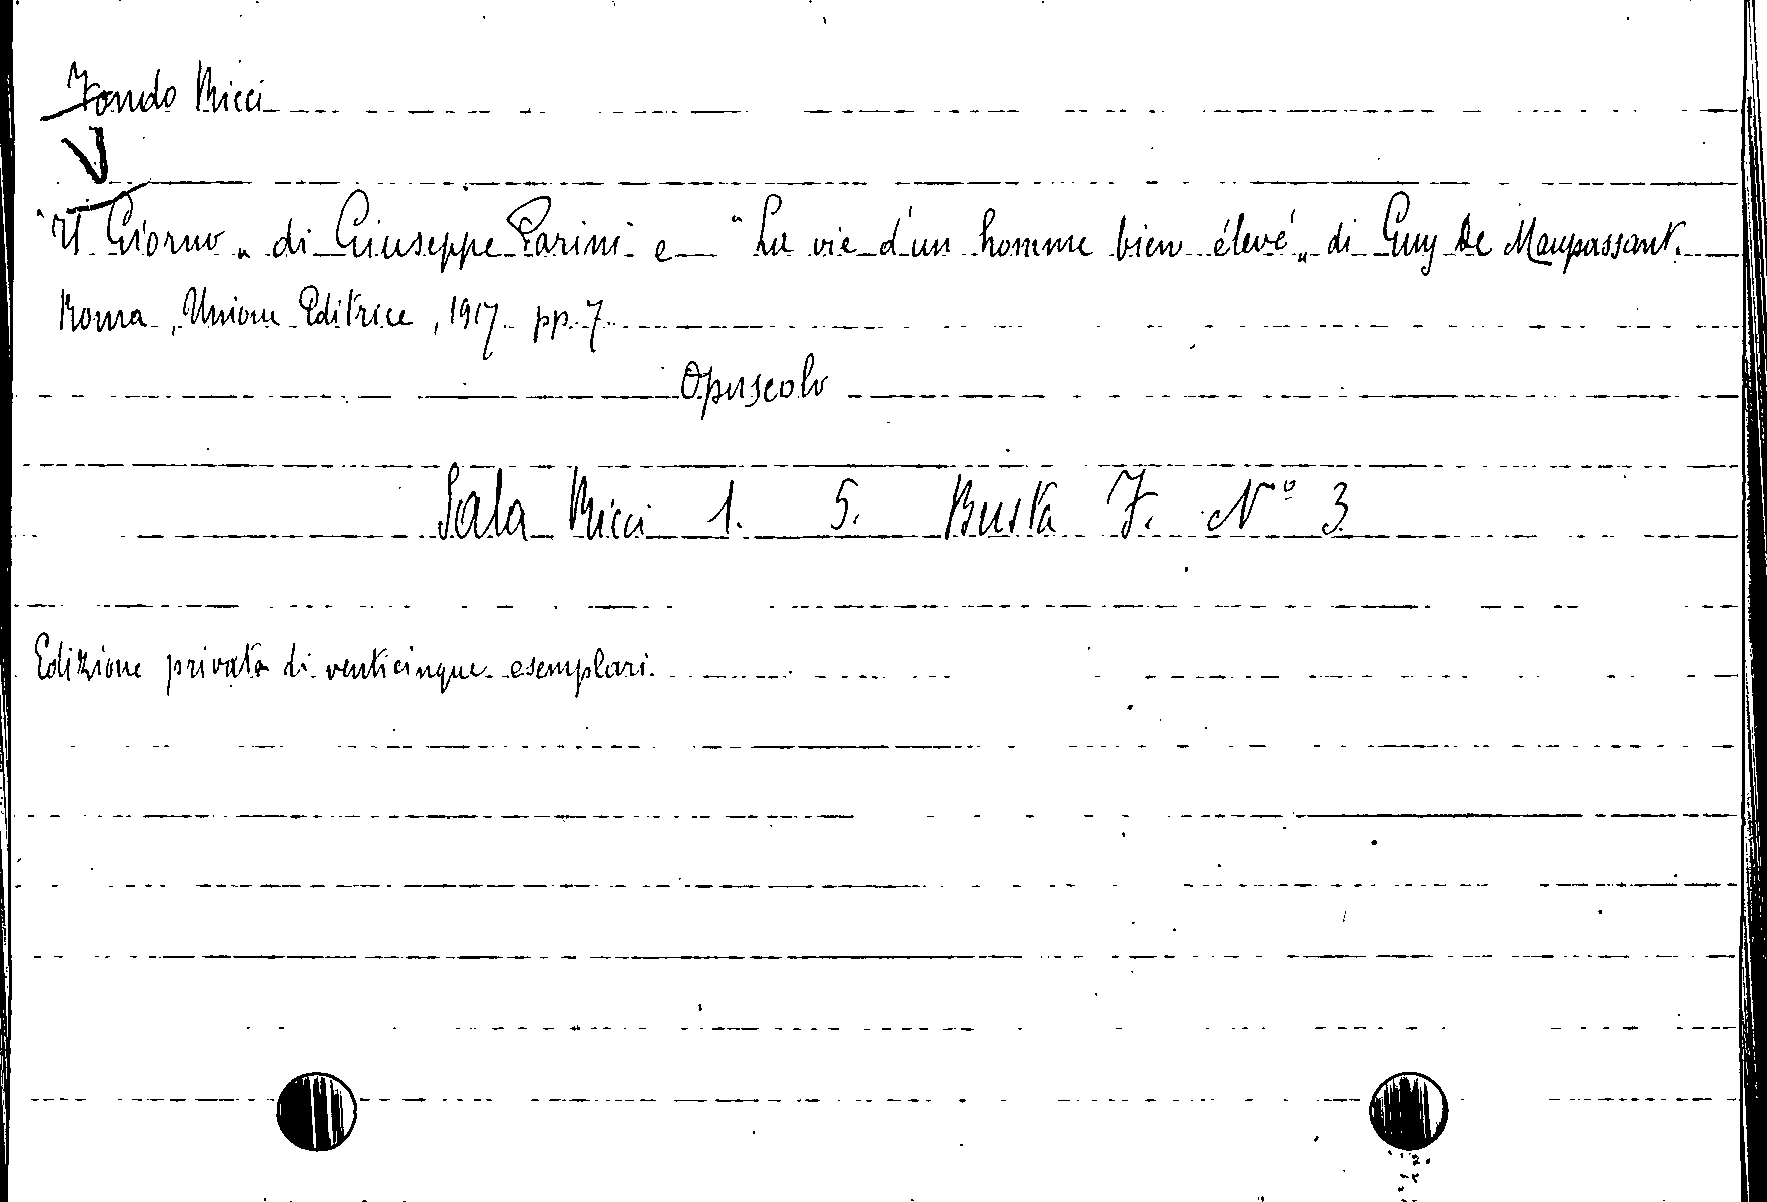 Fondo Ricci
"Il Giorno„ di Giuseppe Parini e "La vie d'un homme bien élevé„ di Guy De Maupassant.
Roma, Unione Editrice, 1917 pp. 7
Opuscolo
Sala Ricci 1. 5. Busta F. Nº 3
Edizione privata di venticinque esemplari.